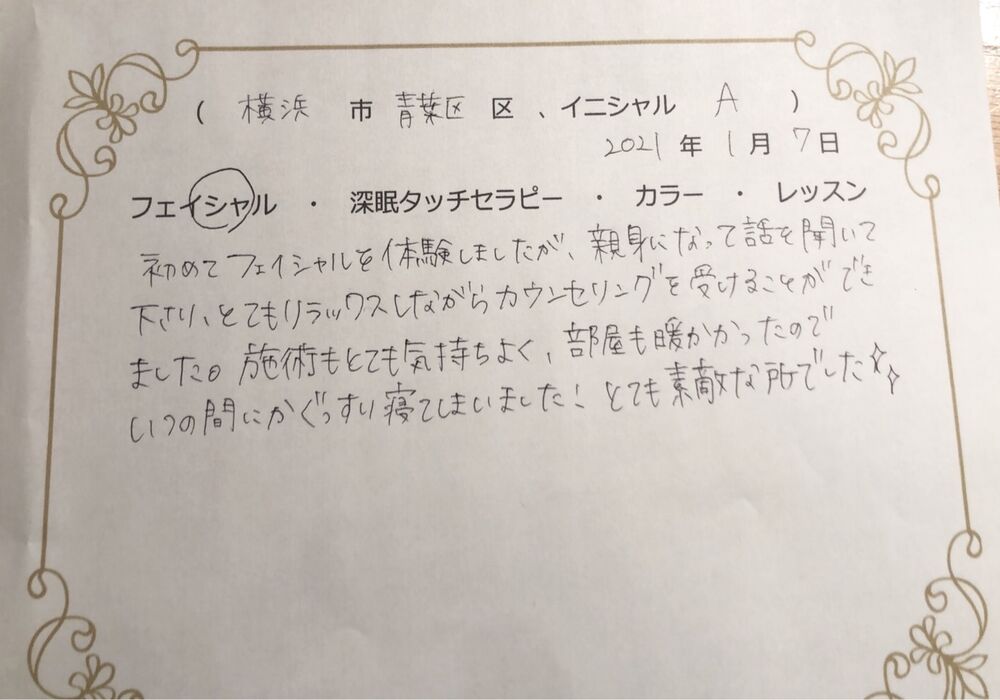 （ 横浜 市 青葉区 区 、イニシャル A ）
2021 年 1 月 7 日
フェイシャル ・ 深眠タッチセラピー ・ カラー ・ レッスン
初めてフェイシャルを体験しましたが、親身になって話を聞いて
下さり、とてもリラックスしながらカウンセリングを受けることができ
ました。施術もとても気持ちよく、部屋も暖かかったので
いつの間にかぐっすり寝てしまいました！とても素敵な所でした☆☆